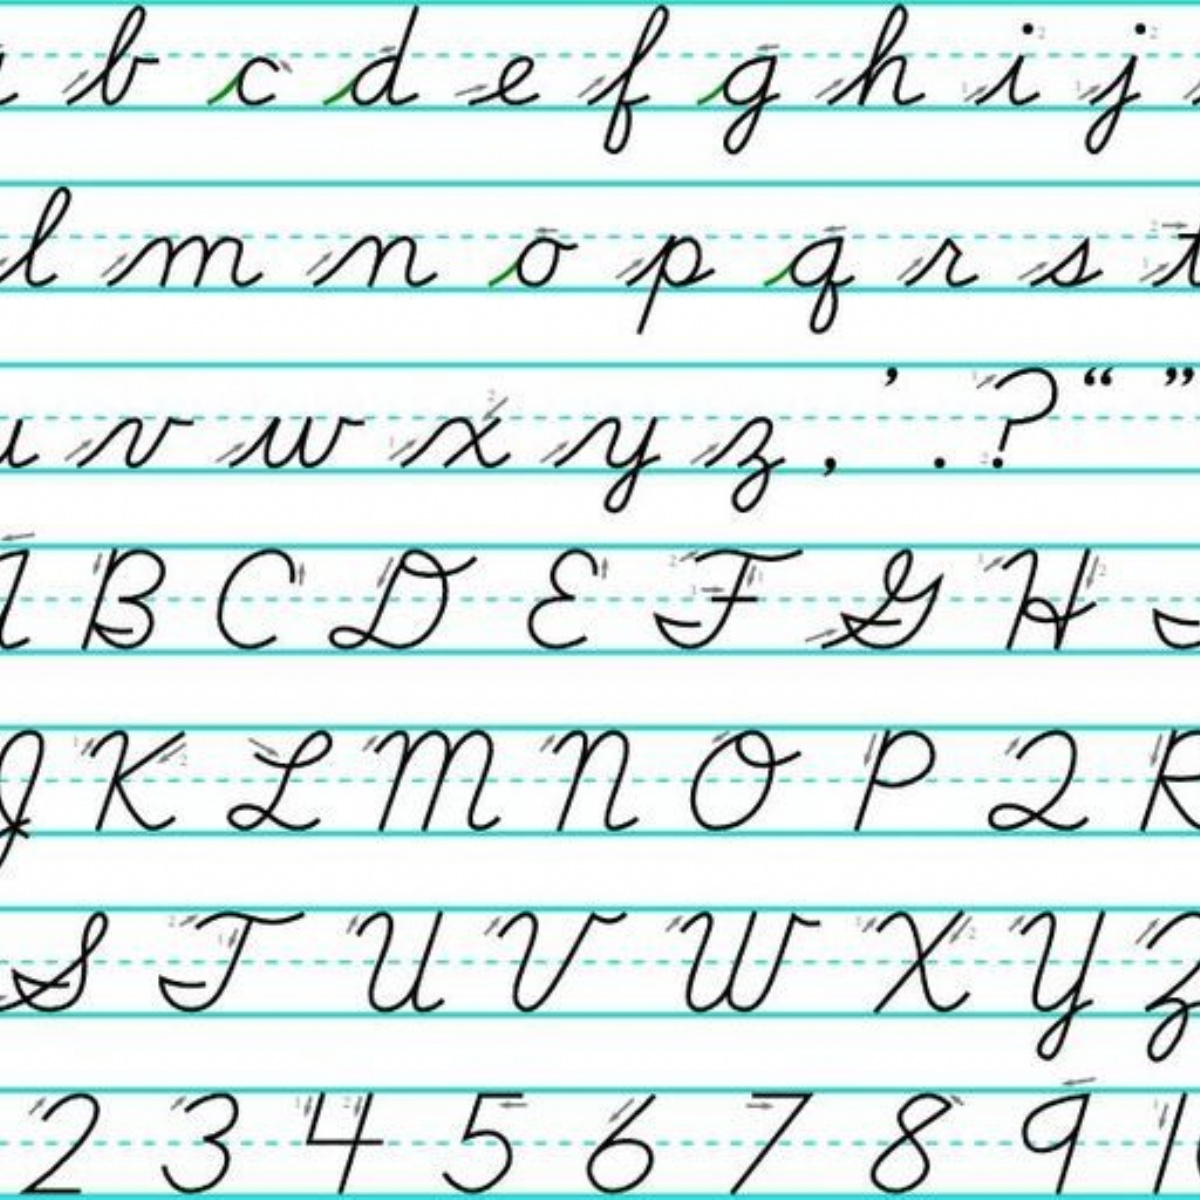 b c d e f g h i j
l m n o p q r s t
u v w x y z , ’ . ? “ ”
A B C D E F G H
J K L M N O P Q R
S T U V W X Y Z
2 3 4 5 6 7 8 9 1